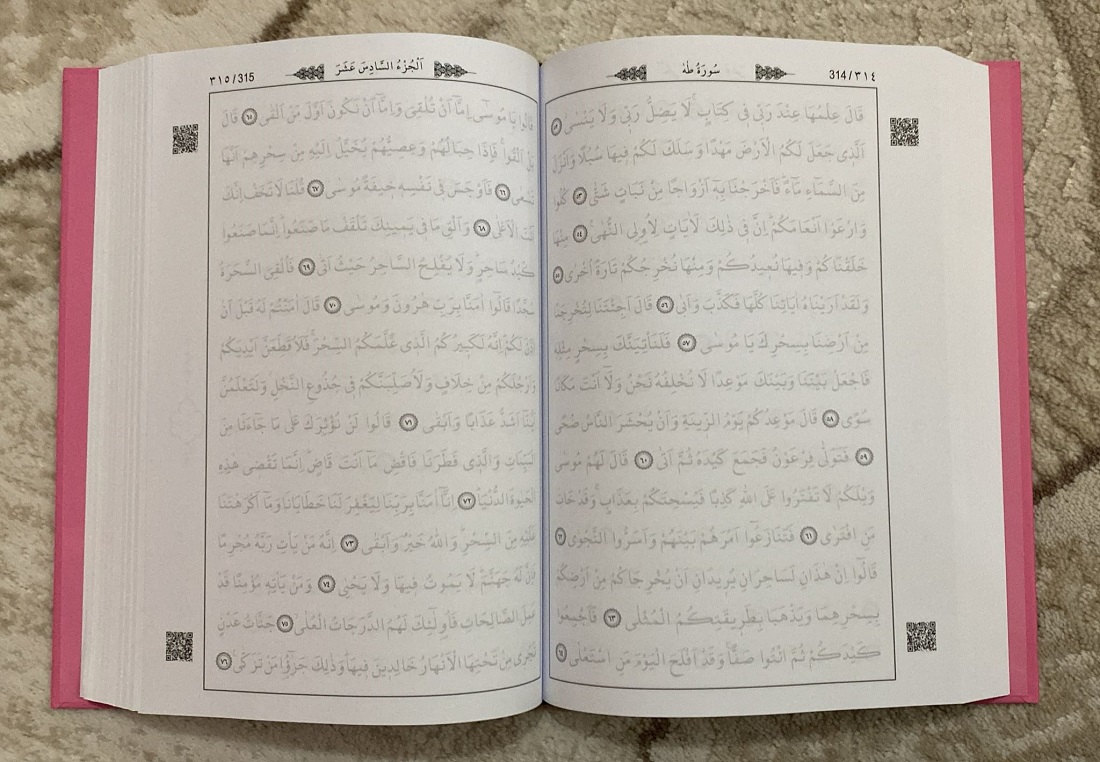 سُورَةُ طٰهٰ
314/٣١٤
قَالَ عِلْمُهَا عِنْدَ رَبّٖى فٖى كِتَابٍ لَا يَضِلُّ رَبّٖى وَلَا يَنْسٰى
اَلَّذٖى جَعَلَ لَكُمُ الْاَرْضَ مَهْدًا وَسَلَكَ لَكُمْ فٖيهَا سُبُلًا وَاَنْزَلَ
مِنَ السَّمَاءِ مَاءً فَاَخْرَجْنَا بِهٖ اَزْوَاجًا مِنْ نَبَاتٍ شَتّٰى ٥٣ كُلُوا
وَارْعَوْا اَنْعَامَكُمْ اِنَّ فٖى ذٰلِكَ لَاٰيَاتٍ لِاُولِى النُّهٰى ٥٤ مِنْهَا
خَلَقْنَاكُمْ وَفٖيهَا نُعٖيدُكُمْ وَمِنْهَا نُخْرِجُكُمْ تَارَةً اُخْرٰى
وَلَقَدْ اَرَيْنَاهُ اٰيَاتِنَا كُلَّهَا فَكَذَّبَ وَاَبٰى ٥٦ قَالَ اَجِئْتَنَا لِتُخْرِجَنَا
مِنْ اَرْضِنَا بِسِحْرِكَ يَا مُوسٰى ٥٧ فَلَنَأْتِيَنَّكَ بِسِحْرٍ مِثْلِهٖ
فَاجْعَلْ بَيْنَنَا وَبَيْنَكَ مَوْعِدًا لَا نُخْلِفُهُ نَحْنُ وَلَا اَنْتَ مَكَانًا
سُوًى ٥٨ قَالَ مَوْعِدُكُمْ يَوْمُ الزّٖينَةِ وَاَنْ يُحْشَرَ النَّاسُ ضُحًى
٥٩ فَتَوَلّٰى فِرْعَوْنُ فَجَمَعَ كَيْدَهُ ثُمَّ اَتٰى ٦٠ قَالَ لَهُمْ مُوسٰى
وَيْلَكُمْ لَا تَفْتَرُوا عَلَى اللّٰهِ كَذِبًا فَيُسْحِتَكُمْ بِعَذَابٍ وَقَدْ خَابَ
مَنِ افْتَرٰى ٦١ فَتَنَازَعُوا اَمْرَهُمْ بَيْنَهُمْ وَاَسَرُّوا النَّجْوٰى
قَالُوا اِنْ هٰذَانِ لَسَاحِرَانِ يُرٖيدَانِ اَنْ يُخْرِجَاكُمْ مِنْ اَرْضِكُمْ
بِسِحْرِهِمَا وَيَذْهَبَا بِطَرٖيقَتِكُمُ الْمُثْلٰى ٦٣ فَاَجْمِعُوا
كَيْدَكُمْ ثُمَّ ائْتُوا صَفًّا وَقَدْ اَفْلَحَ الْيَوْمَ مَنِ اسْتَعْلٰى ٦٤
اَلْجُزْءُ السَّادِسَ عَشَرَ
٣١٥/315
قَالُوا يَا مُوسٰى اِمَّا اَنْ تُلْقِىَ وَاِمَّا اَنْ نَكُونَ اَوَّلَ مَنْ اَلْقٰى ٦٥ قَالَ
بَلْ اَلْقُوا فَاِذَا حِبَالُهُمْ وَعِصِيُّهُمْ يُخَيَّلُ اِلَيْهِ مِنْ سِحْرِهِمْ اَنَّهَا
تَسْعٰى ٦٦ فَاَوْجَسَ فٖى نَفْسِهٖ خٖيفَةً مُوسٰى ٦٧ قُلْنَا لَا تَخَفْ اِنَّكَ
اَنْتَ الْاَعْلٰى ٦٨ وَاَلْقِ مَا فٖى يَمٖينِكَ تَلْقَفْ مَا صَنَعُوا اِنَّمَا صَنَعُوا
كَيْدُ سَاحِرٍ وَلَا يُفْلِحُ السَّاحِرُ حَيْثُ اَتٰى ٦٩ فَاُلْقِىَ السَّحَرَةُ
سُجَّدًا قَالُوا اٰمَنَّا بِرَبِّ هٰرُونَ وَمُوسٰى ٧٠ قَالَ اٰمَنْتُمْ لَهُ قَبْلَ اَنْ
اٰذَنَ لَكُمْ اِنَّهُ لَكَبٖيرُكُمُ الَّذٖى عَلَّمَكُمُ السِّحْرَ فَلَاُقَطِّعَنَّ اَيْدِيَكُمْ
وَاَرْجُلَكُمْ مِنْ خِلَافٍ وَلَاُصَلِّبَنَّكُمْ فٖى جُذُوعِ النَّخْلِ وَلَتَعْلَمُنَّ
اَيُّنَا اَشَدُّ عَذَابًا وَاَبْقٰى ٧١ قَالُوا لَنْ نُؤْثِرَكَ عَلٰى مَا جَاءَنَا مِنَ
الْبَيِّنَاتِ وَالَّذٖى فَطَرَنَا فَاقْضِ مَا اَنْتَ قَاضٍ اِنَّمَا تَقْضٖى هٰذِهِ
الْحَيٰوةَ الدُّنْيَا ٧٢ اِنَّا اٰمَنَّا بِرَبِّنَا لِيَغْفِرَ لَنَا خَطَايَانَا وَمَا اَكْرَهْتَنَا
عَلَيْهِ مِنَ السِّحْرِ وَاللّٰهُ خَيْرٌ وَاَبْقٰى ٧٣ اِنَّهُ مَنْ يَأْتِ رَبَّهُ مُجْرِمًا
فَاِنَّ لَهُ جَهَنَّمَ لَا يَمُوتُ فٖيهَا وَلَا يَحْيٰى ٧٤ وَمَنْ يَأْتِهٖ مُؤْمِنًا قَدْ
عَمِلَ الصَّالِحَاتِ فَاُولٰئِكَ لَهُمُ الدَّرَجَاتُ الْعُلٰى ٧٥ جَنَّاتُ عَدْنٍ
تَجْرٖى مِنْ تَحْتِهَا الْاَنْهَارُ خَالِدٖينَ فٖيهَا وَذٰلِكَ جَزٰؤُا مَنْ تَزَكّٰى ٧٦